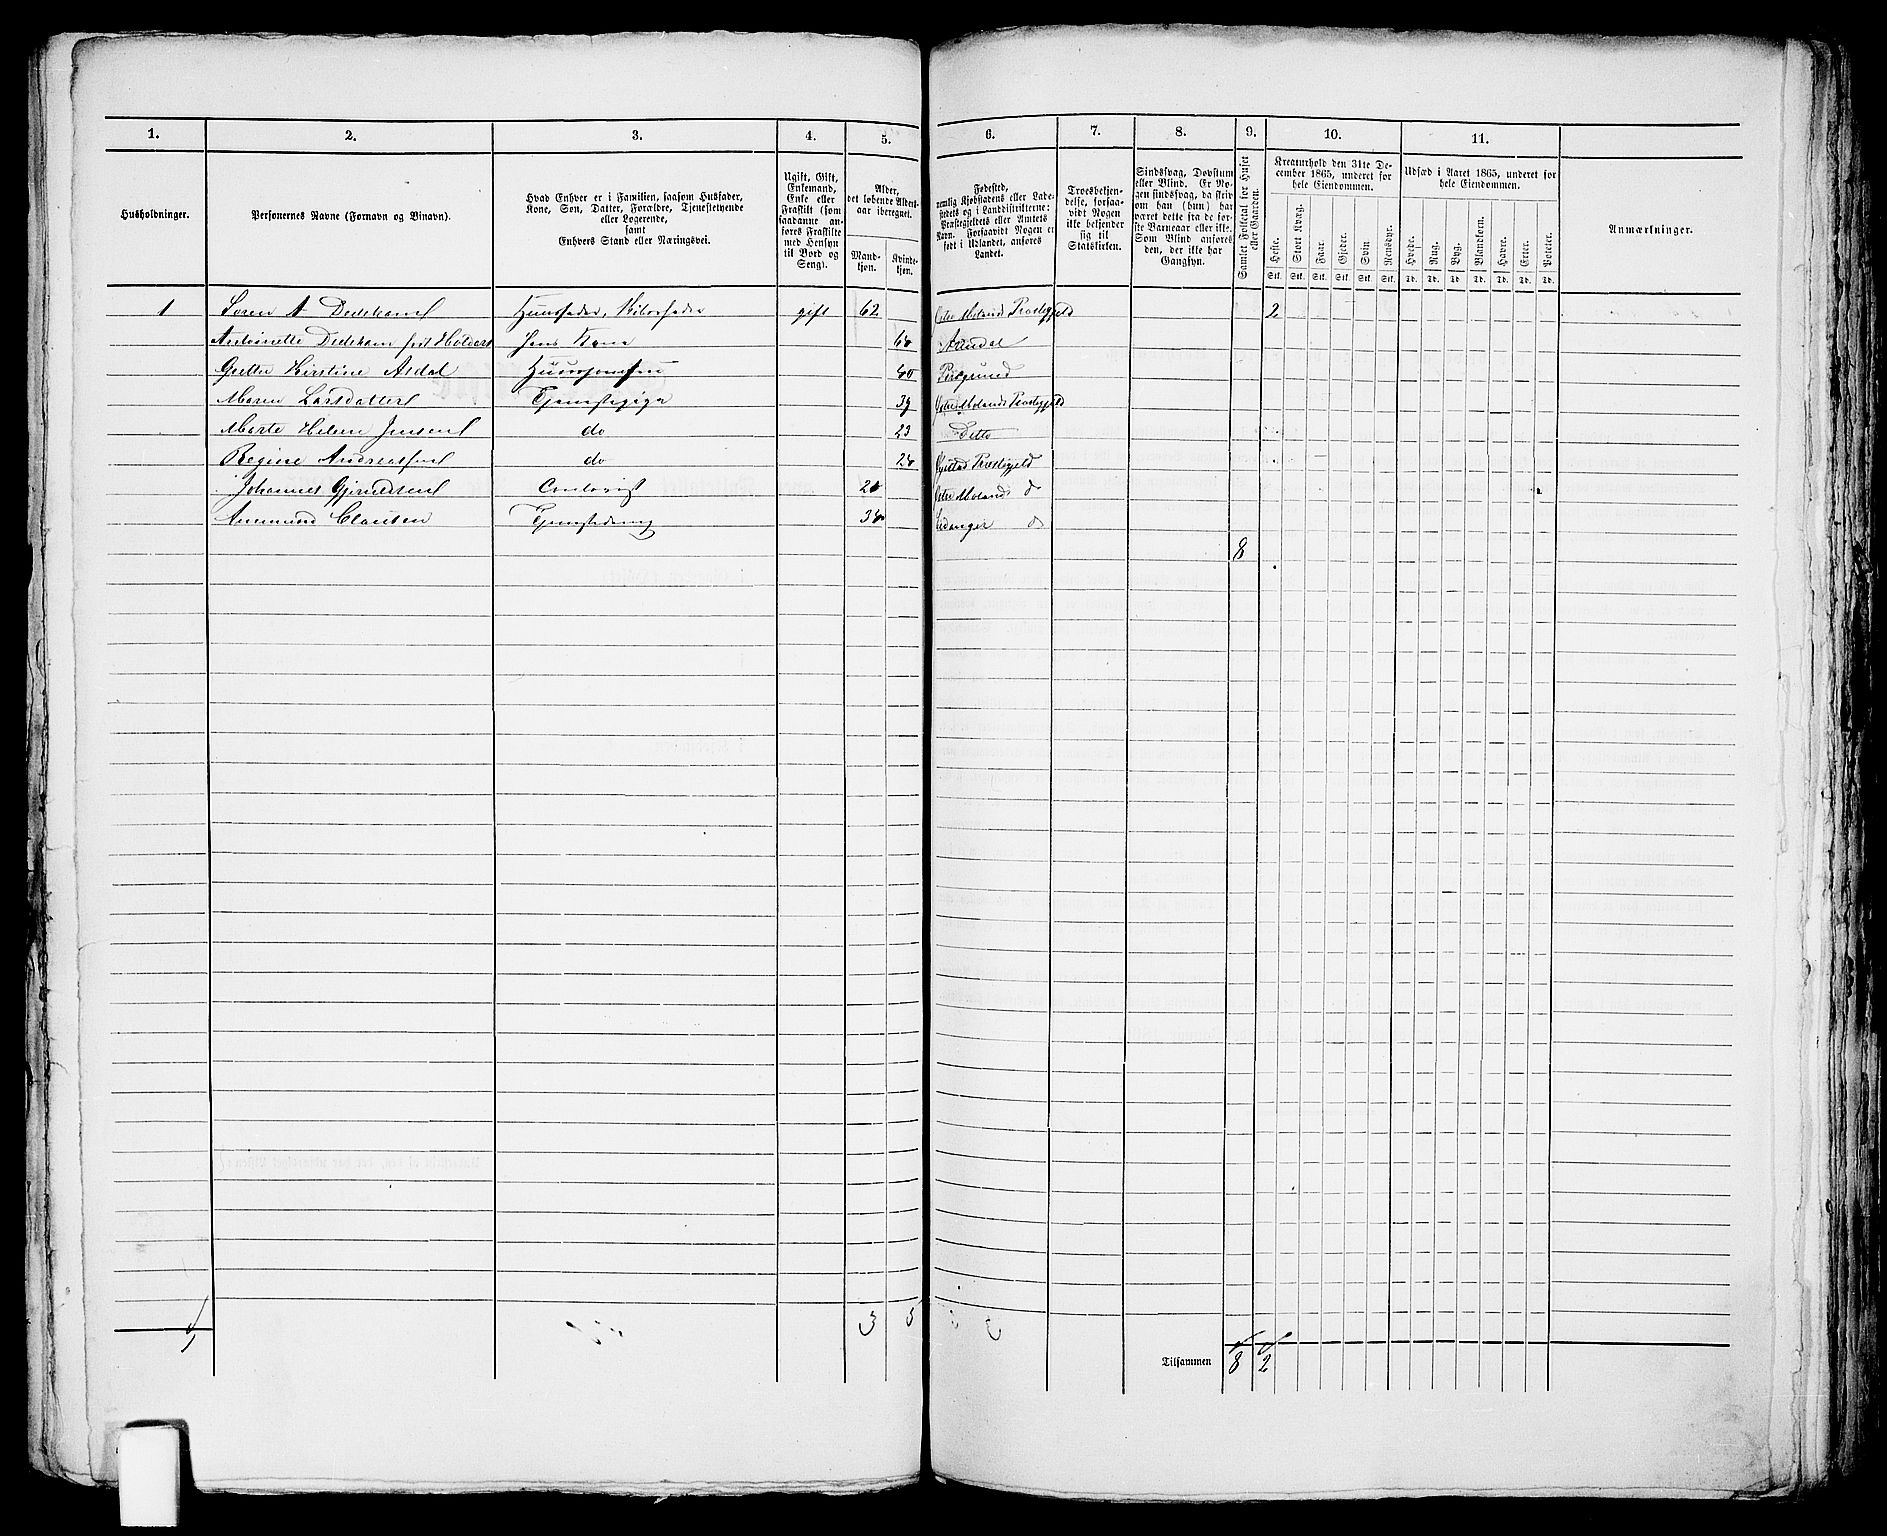 1. 2. 3. 4. 5. 6. 7. 8. 9. 10. 11.
Husholdninger.
Personernes Navne (Fornavn og Binavn).
Hvad Enhver er i Familien, saasom Husfader,
Kone, Søn, Datter, Forældre, Tjenestetyende
eller Logerende,
samt
Enhvers Stand eller Næringsvei.
Ugift, Gift,
Enkemand,
Enke eller
Fraskilt (som
saadanne an-
føres Fraskilte
med Hensyn
til Bord og
Seng).
Alder,
det løbende Alders-
aar iberegnet.
Mand-
kjøn.
Kvinde-
kjøn.
Fødested,
nemlig Kjøbstadens eller Lade-
stedets og i Landdistrikterne:
Præstegjeldets eller Amtets
Navn. Forsaavidt Nogen er
født i Udlandet, anføres
Landet.
Troesbekjen-
delse, forsaa-
vidt Nogen
ikke bekjender
sig til
Statskirken.
Sindssvag, Døvstum
eller Blind. Er No-
gen sindssvag, da skriv
om han (hun) har
været dette fra de før-
ste Barneaar eller ikke.
Som Blind anføres
den, der ikke har
Gangsyn.
Samlet Folketal for Huset
eller Gaarden.
Kreaturhold den 31te De-
cember 1865, underet for
hele Eiendommen.
Heste. Stort Kvæg. Faar. Gjeder. Svin Rensdyr.
Stk. Stk. Stk. Stk. Stk. Stk.
Udsæd i Aaret 1865, underet for
hele Eiendommen.
Hvede. Rug. Byg. Blandkorn. Havre. Erter. Poteter.
Td. Td. Td. Td. Td. Td. Td.
Anmærkninger.
1 Søren A Dedekam Huusfader, gift 62 Østre Molands Præstegjeld 2
Antoinette Dedekam født hans Kone Arendal
Grethe Kirstine Ardal Porsgrund
Maren Larsdatter Tjenestepige 39 Østre Molands Præstegjeld
Marte Helene Jensen do 23 Ditto
Regine Andreassen do Præstegjeld
Johannes Gjeruldsen Contorist Østre Molands do
Clausen do
8
3 5
Tilsammen 8 2